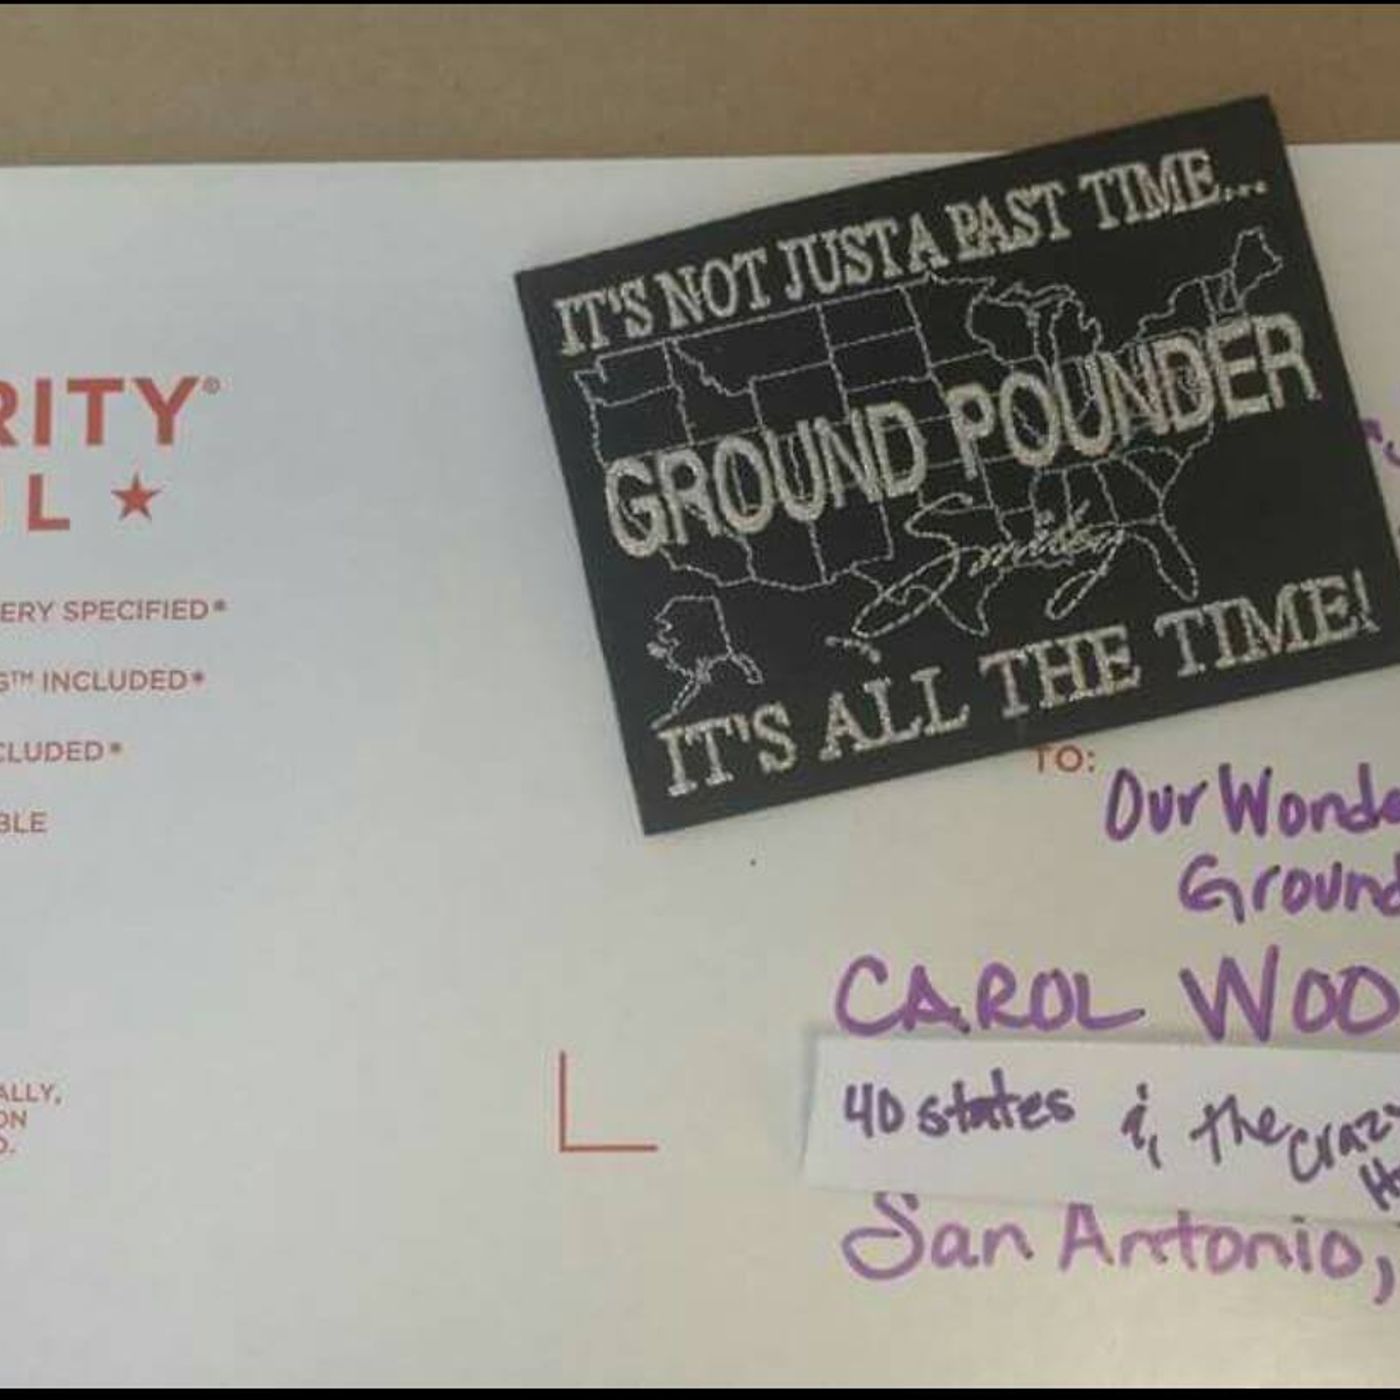 IT'S NOT JUST A PAST TIME...
GROUND POUNDER
Smitty
IT'S ALL THE TIME!
RITY®
IL ★
ERY SPECIFIED*
S™ INCLUDED*
CLUDED*
BLE
ALLY,
ON
D.
TO:
Our Wonde
Ground
CAROL WOO
40 states & the Crazy
San Antonio,